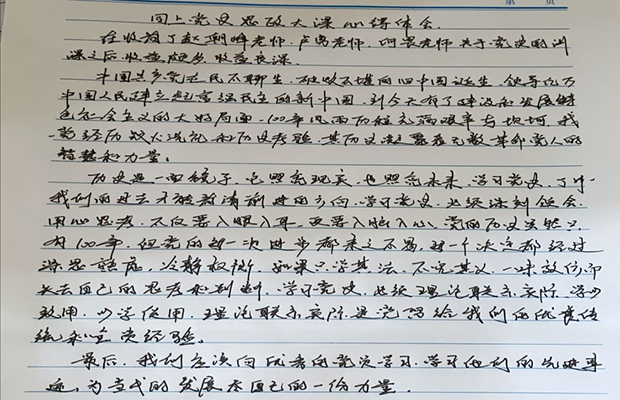 同上党史思政大课心得体会.
在收看了赵朝峰老师, 卢勇老师, 老师关于党史的讲
课之后收益颇多, 收益良深.
中国共产党在民不聊生, 破败不堪的旧中国诞生, 领导亿万
中国人民建立起富强民主的新中国, 到今天有了建设和发展特
色社会主义的大好局面, 100年风雨历程充满艰辛与坎坷, 我
党经历狂风和历史考验, 其历史凝聚着无数革命党人的
智慧和力量。
历史是一面镜子, 它照亮现实, 也照亮未来, 学习党史, 了解
我们的过去才能看清前进的方向, 学习党史, 必须深刻领会,
用心思考, 不仅要入眼入耳, 更要入脑入心, 党的历史虽然只
有100年, 但党的每一次进步都来之不易, 每一个决定都经过
深思熟虑, 冷静权衡, 如果只学其法, 不究其义, 一味放任,即
失去自己的思考和判断, 学习党史, 必须理论联系实际, 学以
致用, 以学促用, 理论联系实际是党留给我们的优良传
统和宝贵经验.
最后, 我们应该向优秀的党员学习, 学习他们的先进事
迹, 为当代的发展尽自己的一份力量.